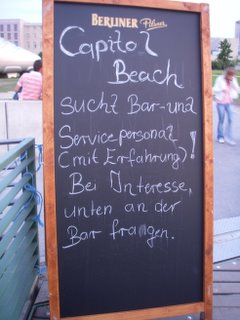 BERLINER Pilsner
Capitol
Beach
sucht Bar-und
Servicepersonal
(mit Erfahrung)!
Bei Interesse,
unten an der
Bar fragen.